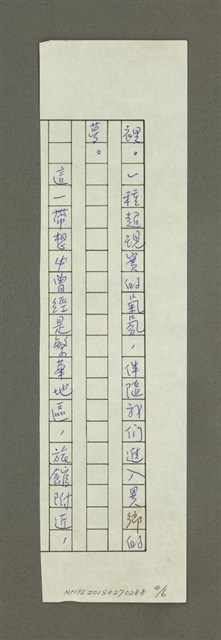 裡。一種超現實的氣氛，伴隨我们進入異鄉的
夢。
這一帶想必曾經是繁華地區，旅館附近，
NMTL20150270288